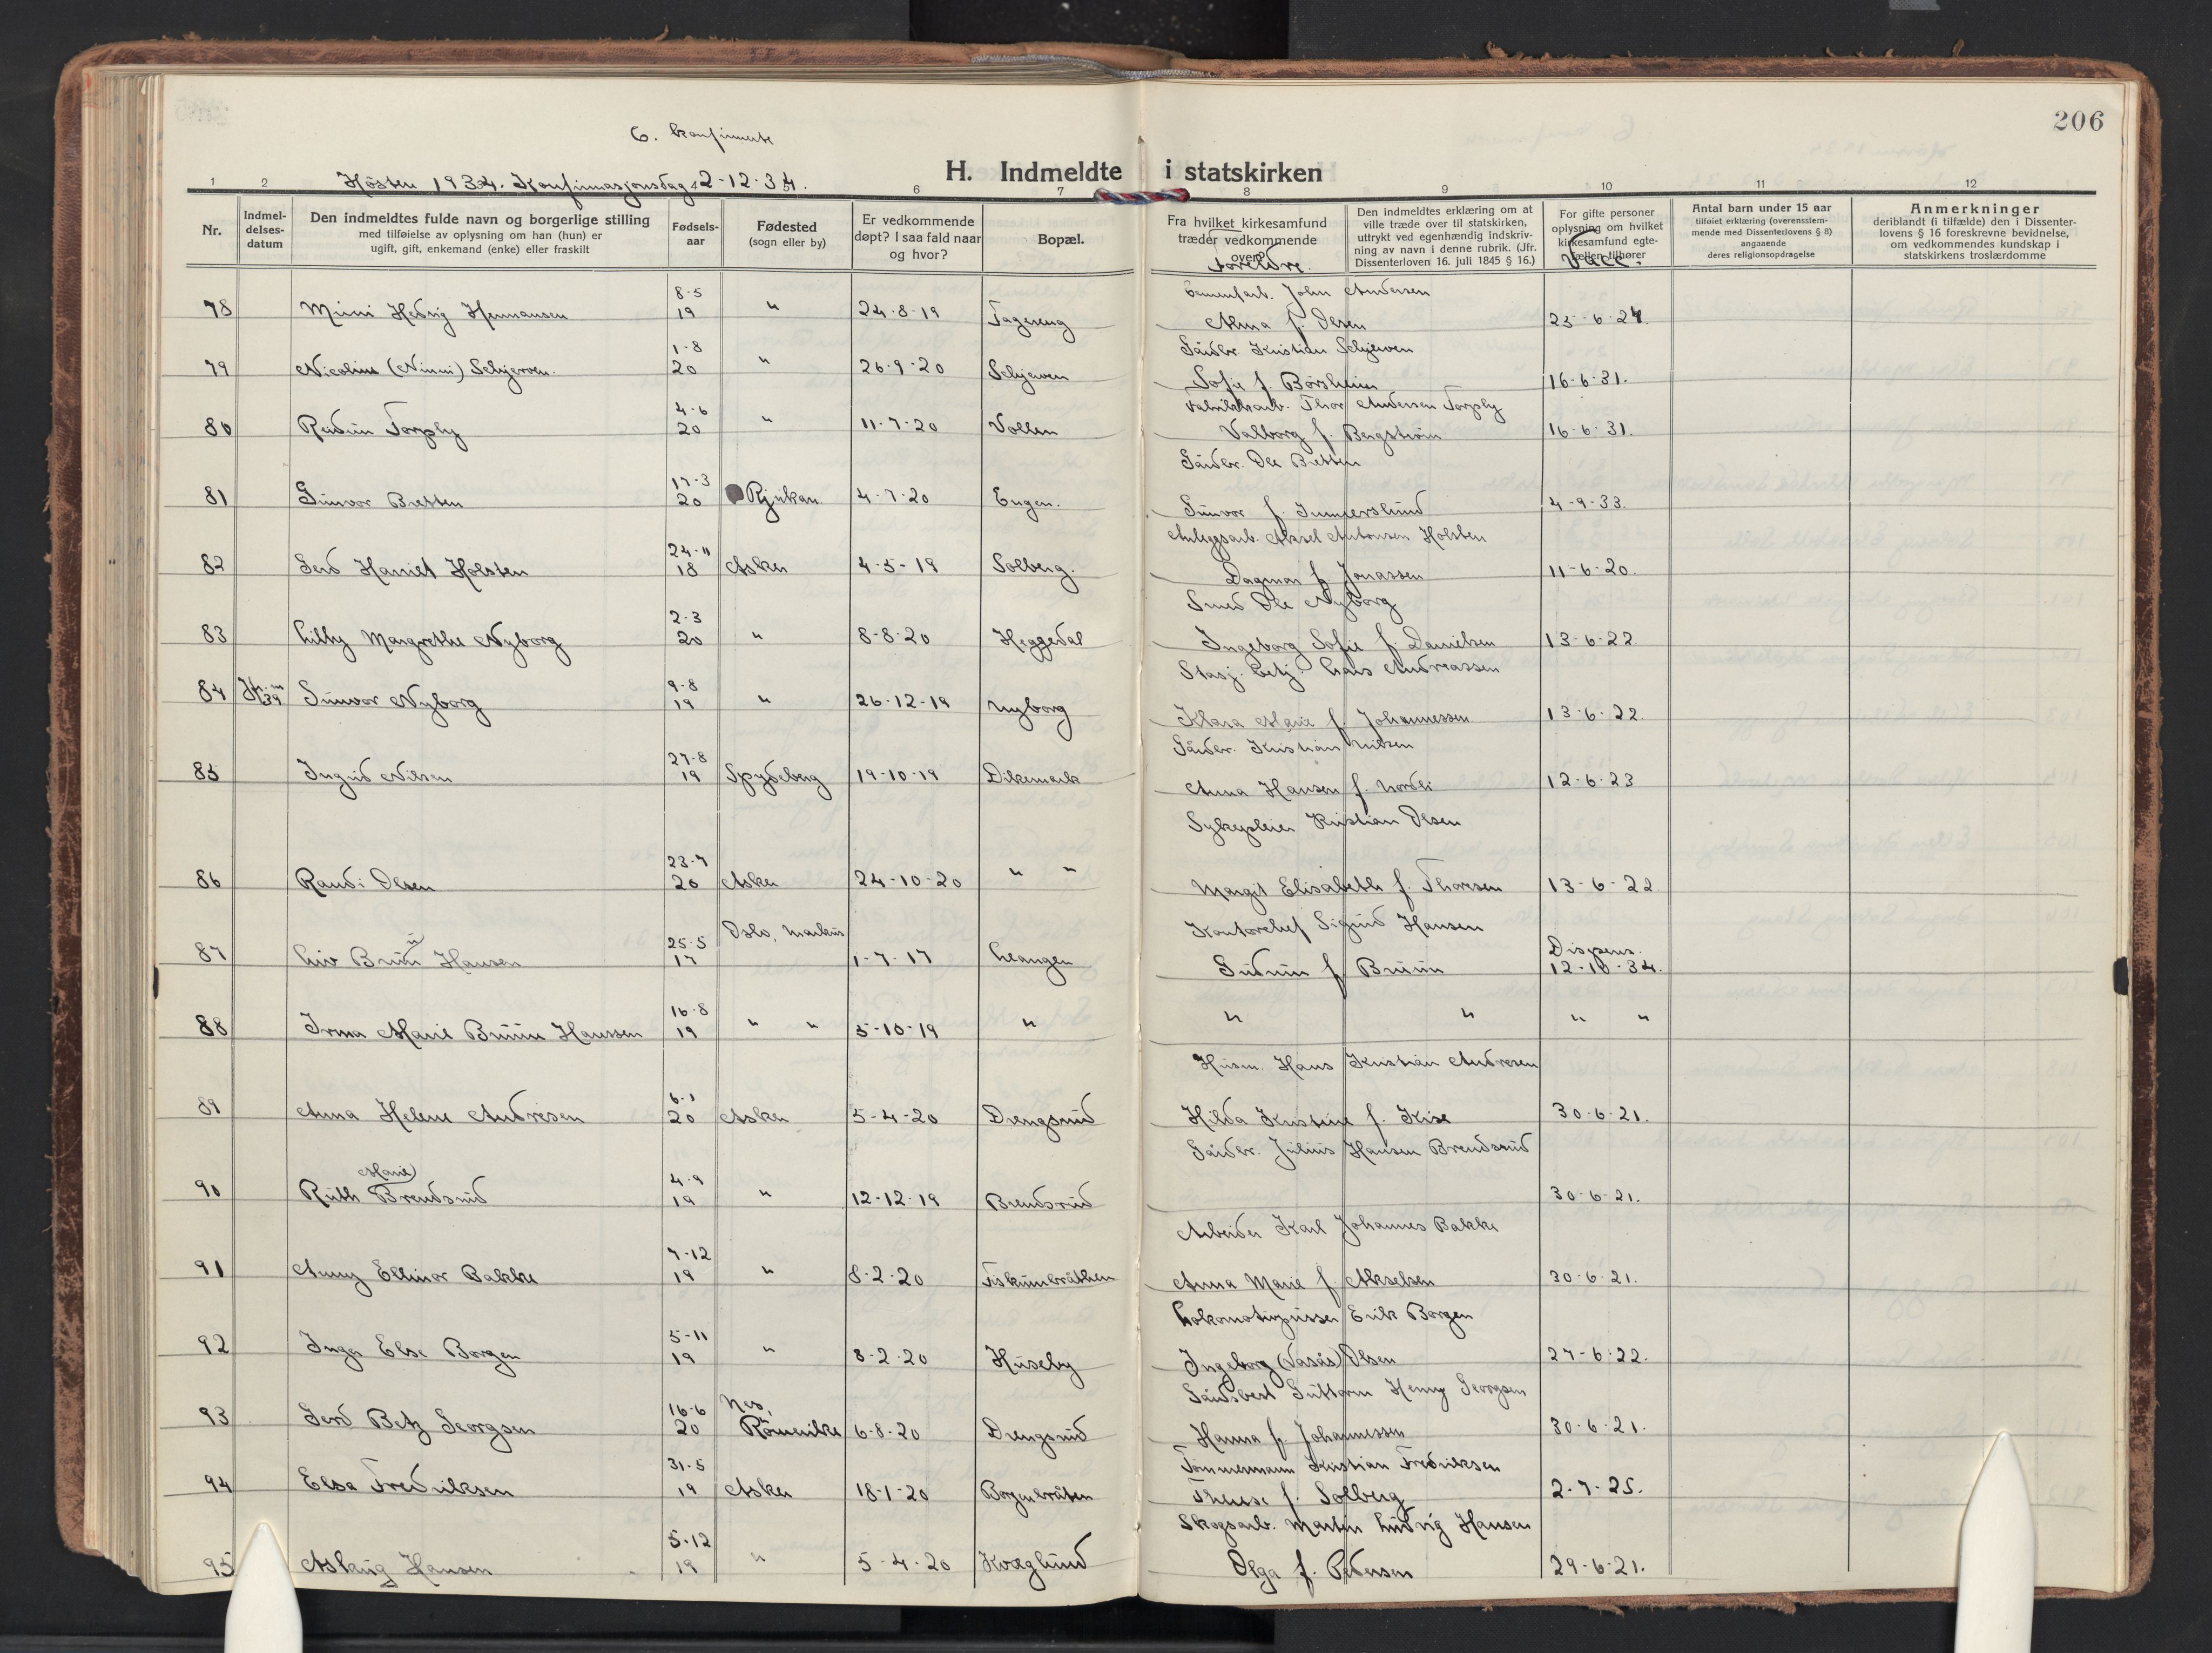 206
C. konfirmerte
H. Indmeldte i statskirken
Høsten 1934. Konfirmasjonsdag 2-12-34.
1 2 6 7 8 9 10 11 12
Nr.
Indmeldelsesdatum
Den indmeldtes fulde navn og borgerlige stilling
med tilføielse av oplysning om han (hun) er
ugift, gift, enkemand (enke) eller fraskilt
Fødselsaar
Fødested
(sogn eller by)
Er vedkommende
døpt? I saa fald naar
og hvor?
Bopæl.
Fra hvilket kirkesamfund
træder vedkommende
over?
Foreldre.
Den indmeldtes erklæring om at
ville træde over til statskirken,
uttrykt ved egenhændig indskriv-
ning av navn i denne rubrik. (Jfr.
Dissenterloven 16. juli 1845 § 16.)
For gifte personer
oplysning om hvilket
kirkesamfund egte-
fællen tilhører
Vacc.
Antal barn under 15 aar
tilføiet erklæring (overensstem-
mende med Dissenterlovens § 8)
angaaende
deres religionsopdragelse
Anmerkninger
deriblandt (i tilfælde) den i Dissenter-
lovens § 16 foreskrevne bevidnelse,
om vedkommendes kundskap i
statskirkens troslærdomme
8-5 Cementarb. John Andersen
78 Mimi Hedvig Hermansen 19 " 24-8-19 Fagereng Alma f. Olsen 25-6-24.
1-8 Gårdbr. Kristian Schjerven
79 Nicoline (Ninni) Schjerven. 20 " 26-9-20 Schjerven Sofie f. Børsheim 16-6-31.
4-6 Fabrikkarb. Thor Andersen Torply
80 Reidun Torply 20 " 11-7-20 Vollen Valborg f. Bergstrøm 16-6-31.
17-3 Gårdbr. Ole Bretten
81 Gunvor Bretten 20 Rjukan 4-7-20 Engen. Gunvor f. Gunnerslund 4-9-33.
24-11 Anleggsarb. Aksel Antonsen Holsten
82 Gerd Harriet Holsten 18 Asker 4-5-19 Solberg. Dagmar f. Jonassen 11-6-20.
2-3 Smed Ole Nyborg
83 Lilly Margrethe Nyborg 20 " 8-8-20 Heggedal Ingeborg Sofie f. Danielsen 13-6-22
9-8 Stasj. betj. Lars Andreassen
84 Gunvor Nyborg 19 " 26-12-19 Nyborg Klara Marie f. Johannessen 13-6-22.
27-8 Gårdbr. Kristian Nilsen
85 Ingrid Nilsen 19 Spydeberg 19-10-19 Dikemark Anna Hansen f. Nordli 12-6-23
23-7 Sykepleier Kristian Olsen
86 Randi Olsen 20 Asker 24-10-20 " " Margit Elisabeth f. Thoresen 13-6-22
25-5 Oslo, Markus Kontorchef Sigurd Hansen Dispens.
87 Liv Bruun Hansen 17 1-7-17 Leangen Gudrun f. Bruun 12-10-34.
16-8
88 Irma Marie Bruun Hanssen 19 " " 5-10-19 " " " " "
6-1 Husm. Hans Kristian Andresen
89 Anna Helene Andresen 20 Asker 5-4-20 Drengsrud Hilda Kristine f. Kise 30-6-21.
Marie 4-9 Gårdbr. Julius Hansen Brendsrud
90 Ruth Brendsrud 19 " 12-12-19 Brendsrud 30-6-21.
7-12 Arbeider Karl Johannes Bakke
91 Anny Ellinor Bakke 19 " 8-2-20 Fiskumbråthen Anna Marie f. Akselsen 30-6-21.
5-11 Lokomotivpusser Erik Borgen
92 Inger Else Borgen 19 " 8-2-20 Huseby Ingeborg (Vasås) Olsen 27-6-22.
16-6 Nes, Gårdsbest Guttorm Henry Georgsen
93 Gerd Betz Georgsen 20 Romerike 6-8-20 Drengsrud Hanna f. Johannessen 30-6-21.
31-5 Tømmermann Kristian Fredriksen
94 Elsa Fredriksen 19 Asker 18-1-20 Borgenbråten Therese f. Solberg 2-7-25.
5-12 Skogsarb. Martin Ludvig Hansen
95 Aslaug Hansen 19 " 5-4-20 Kvæglund Olga f. Pedersen 29-6-21.